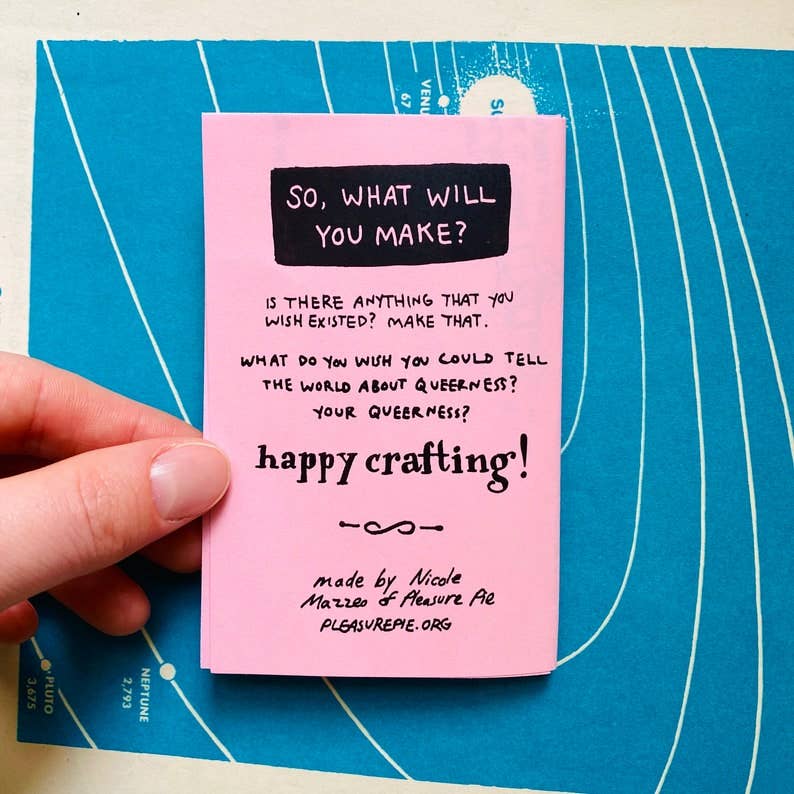 SO, WHAT WILL
YOU MAKE?
IS THERE ANYTHING THAT YOU
WISH EXISTED? MAKE THAT.
WHAT DO YOU WISH YOU COULD TELL
THE WORLD ABOUT QUEERNESS?
YOUR QUEERNESS?
happy crafting!
made by Nicole
Mazzeo of Pleasure Pie
PLEASUREPIE.ORG
VENU
67
SU
PLUTO
3,675
NEPTUNE
2,793